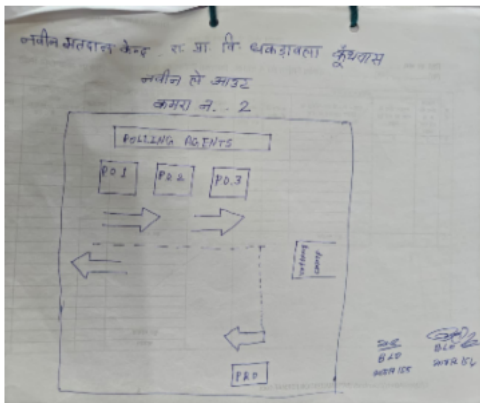 नवीन मतदान केन्द्र रा. प्रा. वि. थकडावला कुँथवास
नवीन ले आउट
कमरा न. . 2
POLLING AGENTS
PO.1 PO.2 PO.3
PRO
BLO
BLO